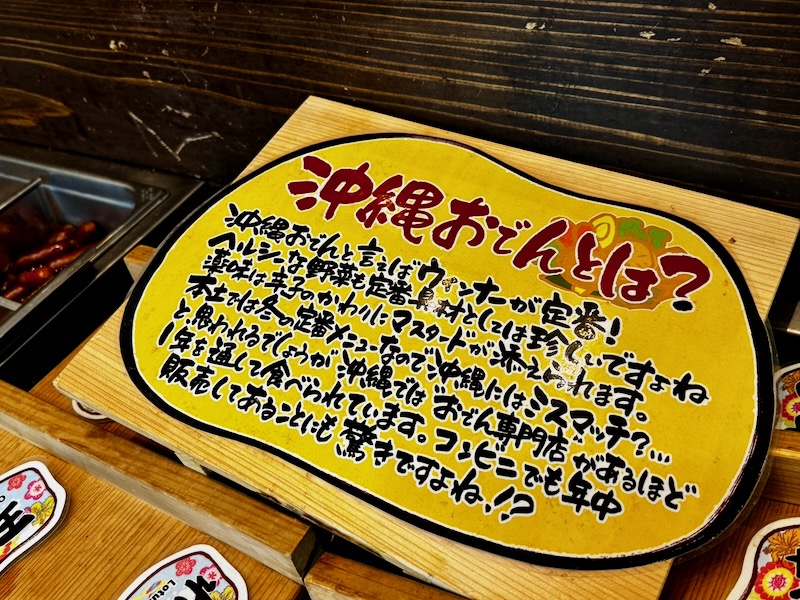 沖縄おでんとは?
沖縄おでんと言えばウィンナーが定番!
ヘルシーな野菜も定番具材としては珍しいですよね
薬味は辛子のかわりにマスタードが添えられます。
本土では冬の定番メニューなので沖縄にはミスマッチ?...
と思われるでしょうが沖縄ではおでん専門店があるほど
1年を通して食べられています。コンビニでも年中
販売してあることにも驚きですよね!?